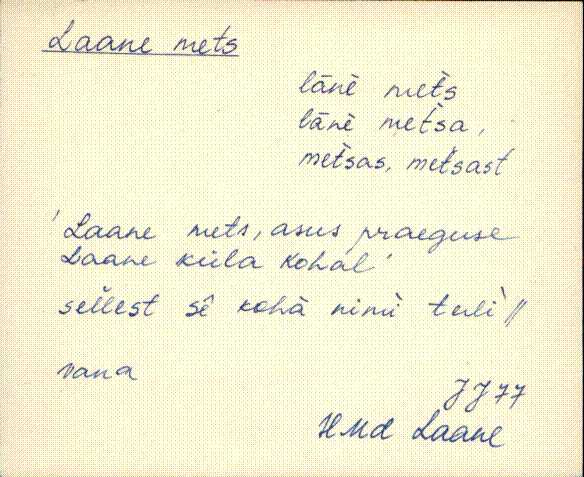 Laane mets
lānè mèts
lānè mètsa,
mètsas, mètsast
'Laane mets, asus praeguse
Laane küla kohal'
sellest sê kohà nimì tulì //
vana
JJ 77
HMd Laane